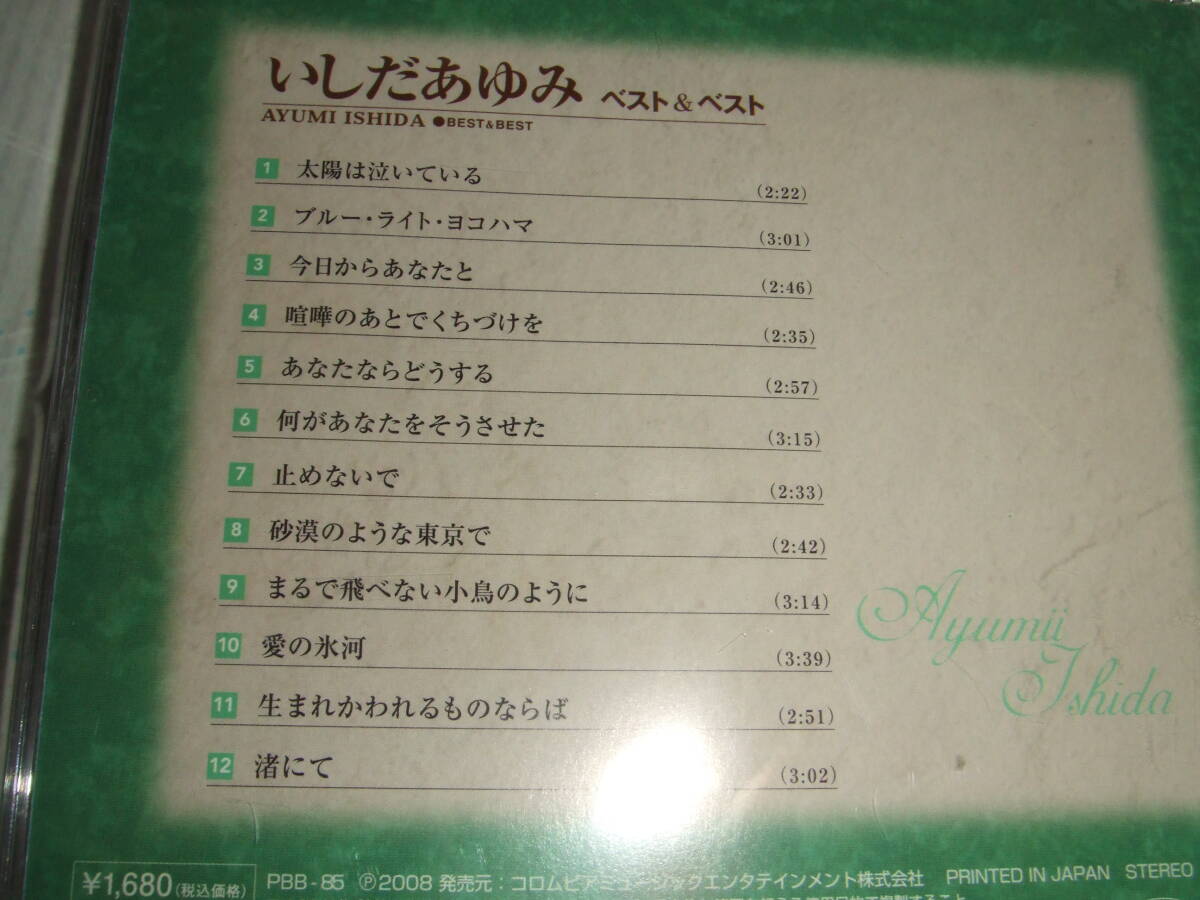 いしだあゆみ ベスト&ベスト
AYUMI ISHIDA ●BEST&BEST
1 太陽は泣いている (2:22)
2 ブルー・ライト・ヨコハマ (3:01)
3 今日からあなたと (2:46)
4 喧嘩のあとでくちづけを (2:35)
5 あなたならどうする (2:57)
6 何があなたをそうさせた (3:15)
7 止めないで (2:33)
8 砂漠のような東京で (2:42)
9 まるで飛べない小鳥のように (3:14)
10 愛の氷河 (3:39)
11 生まれかわれるものならば (2:51)
12 渚にて (3:02)
Ayumii
Ishida
¥1,680(税込価格) PBB-85 ℗2008 発売元:コロムビアミュージックエンタテインメント株式会社 PRINTED IN JAPAN STEREO